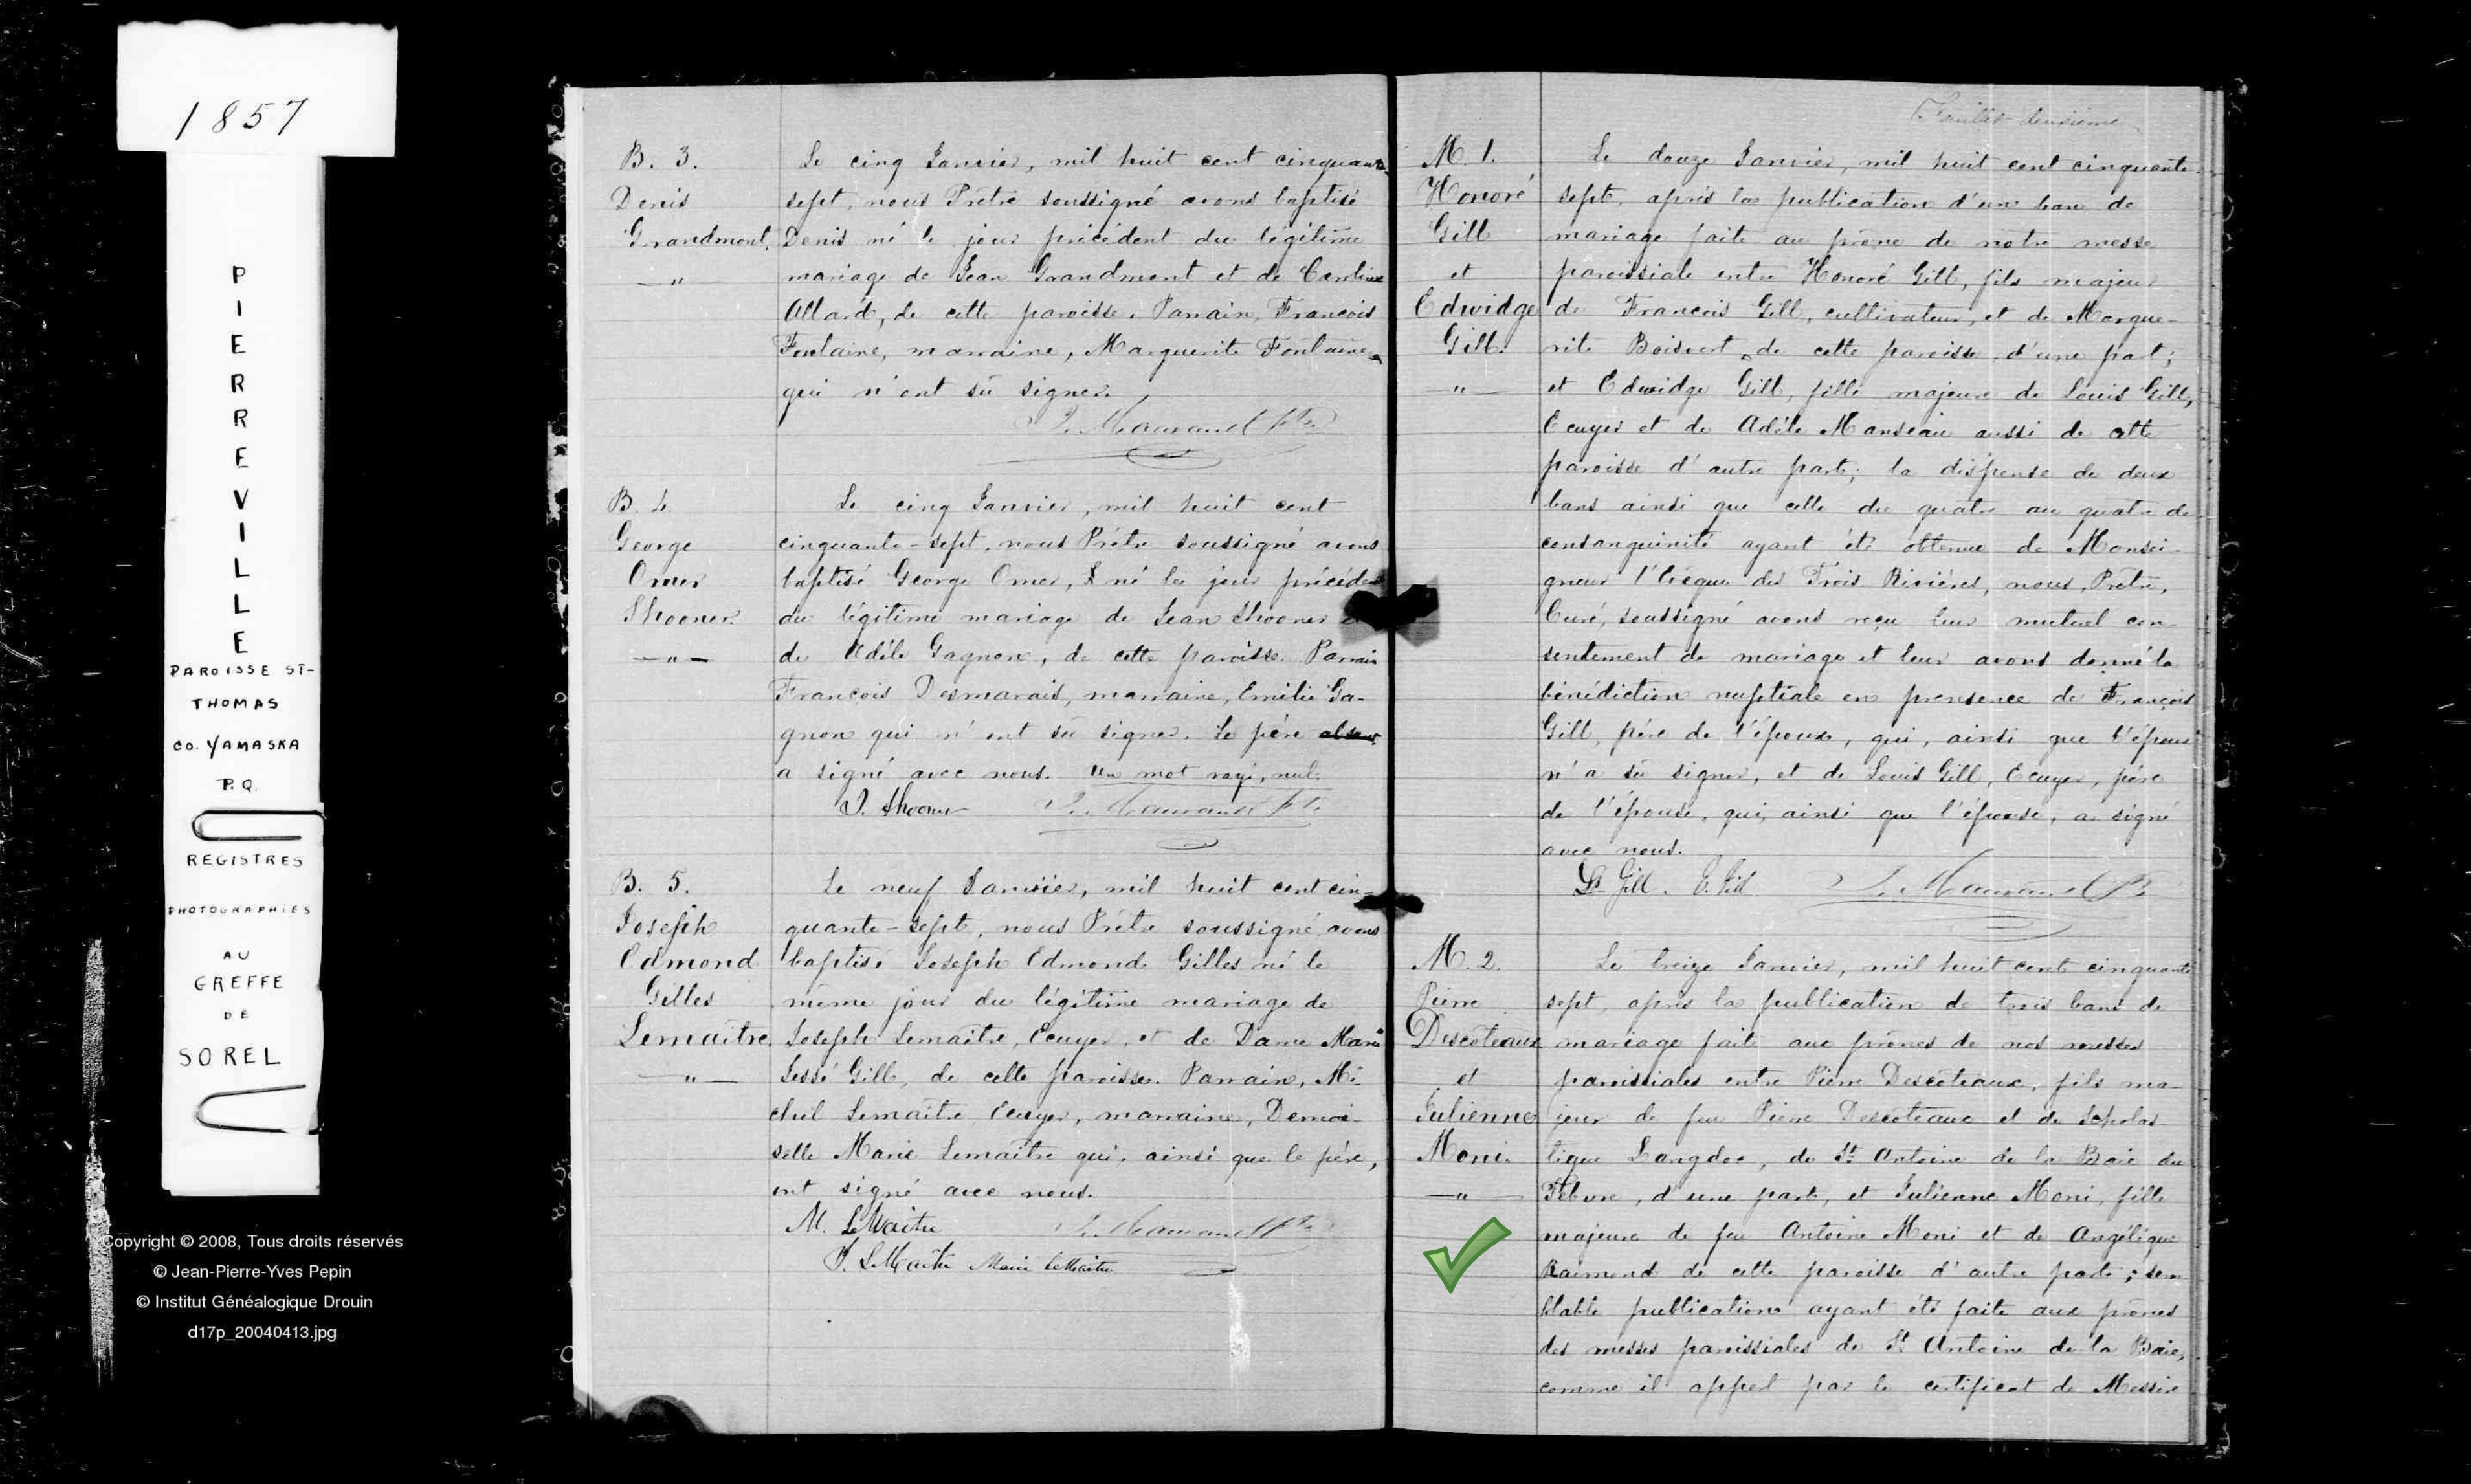 1857
P
I
E
R
R
E
V
I
L
L
E
PAROISSE ST-
THOMAS
CO. YAMASKA
P.Q.
REGISTRES
PHOTOGRAPHIES
AU
GREFFE
DE
SOREL
Copyright © 2008, Tous droits réservés
© Jean-Pierre-Yves Pepin
© Institut Généalogique Drouin
d17p_20040413.jpg
B. 3.
Denis
Grandmont.
— " —
Le cinq Janvier, mil huit cent cinquante-
sept, nous Prêtre soussigné avons baptisé
Denis né le jour précédent du légitime
mariage de Jean Grandmont et de Caroline
Allard, de cette paroisse. Parrain, François
Fontaine, marraine, Marguerite Fontaine
qui n'ont su signer.
J. Maurault Ptre
B. 4.
George
Omer
Shooner.
— " —
Le cinq Janvier, mil huit cent
cinquante-sept, nous Prêtre soussigné avons
baptisé George Omer, né le jour précédent
du légitime mariage de Jean Shooner et
de Adèle Gagnon, de cette paroisse. Parrain
François Desmarais, marraine, Emilie Ga-
gnon qui n'ont su signer. Le père absent
a signé avec nous. Un mot rayé, nul.
J. Shooner J. Maurault Ptre
B. 5.
Joseph
Edmond
Gilles
Lemaître.
— " —
Le neuf Janvier, mil huit cent cin-
quante-sept, nous Prêtre soussigné, avons
baptisé Joseph Edmond Gilles né le
même jour du légitime mariage de
Joseph Lemaître, Ecuyer, et de Dame Marie
Gill, de cette paroisse. Parrain, Mi-
chel Lemaître Ecuyer, marraine, Demoi-
selle Marie Lemaître qui, ainsi que le père,
ont signé avec nous.
M. LeMaitre J. Maurault Ptre
J. LeMaitre Marie LeMaitre
Feuillet deuxième
M. 1.
Honoré
Gill
et
Edwidge
Gill.
— " —
Le douze Janvier, mil huit cent cinquante-
sept, après la publication d'un ban de
mariage faite au prône de notre messe
paroissiale entre Honoré Gill, fils majeur
de François Gill, cultivateur, et de Margue-
rite Boisvert de cette paroisse d'une part;
et Edwidge Gill, fille majeure de Louis Gill,
Ecuyer et de Adèle Manseau aussi de cette
paroisse d'autre part; la dispense de deux
bans ainsi que celle du quatre au quatre de
consanguinité ayant été obtenue de Monsei-
gneur l'Evêque des Trois Rivières, nous, Prêtre,
Curé, soussigné avons reçu leur mutuel con-
sentement de mariage et leur avons donné la
bénédiction nuptiale en presence de François
Gill, père de l'époux, qui, ainsi que l'époux
n'a su signer, et de Louis Gill, Ecuyer, père
de l'épouse, qui, ainsi que l'épouse, a signé
avec nous.
Ls. Gill. E. Gill J. Maurault Ptre
M. 2.
Pierre
Descôteaux
et
Julienne
Moni.
— " —
Le treize Janvier, mil huit cent cinquante
sept, après la publication de trois bans de
mariage faite aux prônes de nos messes
paroissiales entre Pierre Descôteaux, fils ma-
jeur de feu Pierre Descôteaux et de Scholas-
tique Langdoc, de St Antoine de la Baie du
Febvre, d'une part, et Julienne Moni, fille
majeure de feu Antoine Moni et de Angélique
Raimond de cette paroisse d'autre part; sem-
blable publication ayant été faite aux prônes
des messes paroissiales de St Antoine de la Baie,
comme il appert par le certificat de Messire